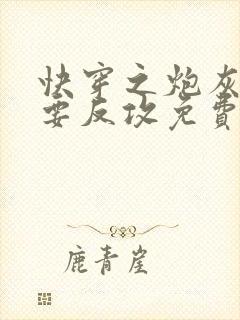 快穿之炮灰
要反攻免費
鹿青崖